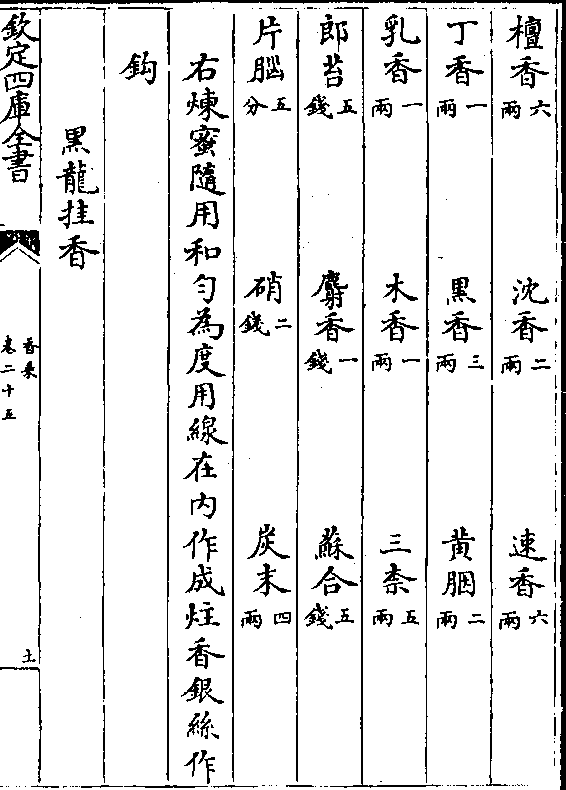 檀香六兩 沈香二兩 速香六兩
丁香一兩 黒香三兩 黄胭二兩
乳香一兩 木香一兩 三柰五兩
郎苔五錢 麝香一錢 蘇合五錢
片腦五分 硝二錢 炭末四兩
右煉蜜隨用和匀為度用線在内作成炷香銀絲作
鈎
黒龍挂香
欽定四庫全書
香乘
卷二十五
土